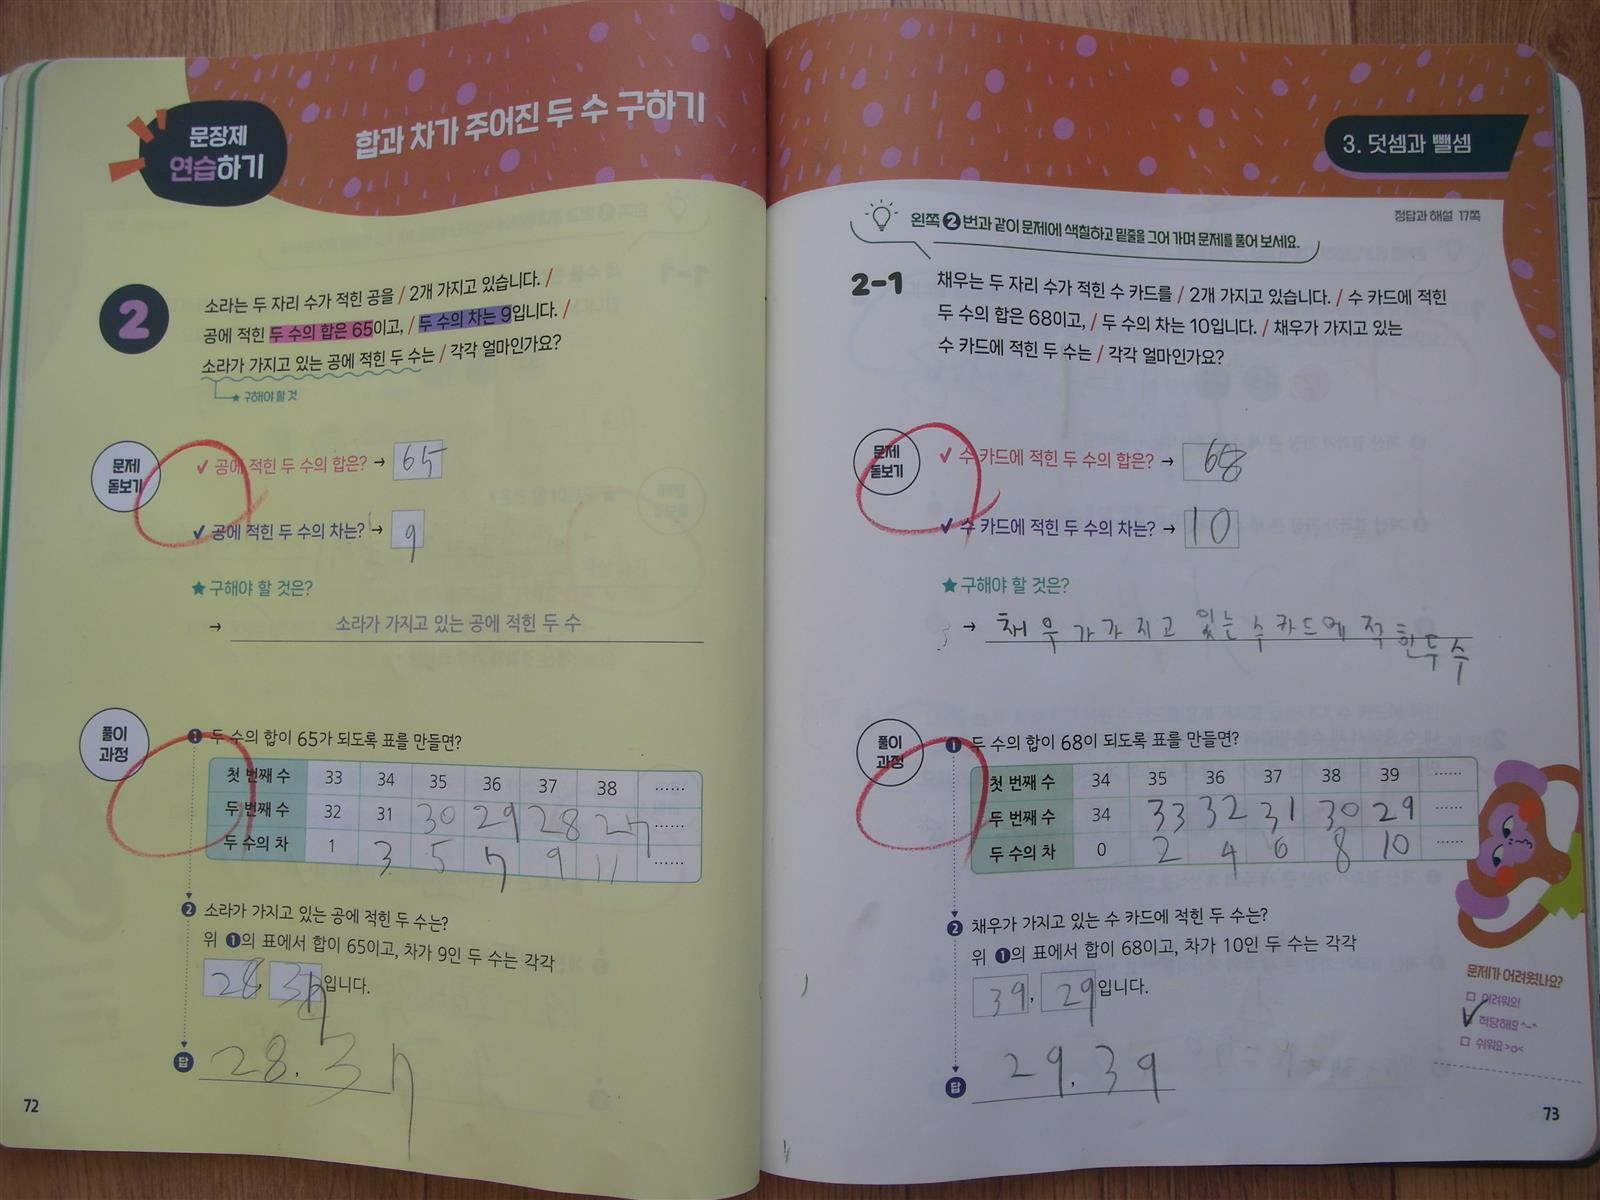 문장제
연습하기
합과 차가 주어진 두 수 구하기
2
소라는 두 자리 수가 적힌 공을 / 2개 가지고 있습니다. /
공에 적힌 두 수의 합은 65이고, / 두 수의 차는 9입니다. /
소라가 가지고 있는 공에 적힌 두 수는 / 각각 얼마인가요?
★ 구해야 할 것
문제
돋보기
✓ 공에 적힌 두 수의 합은? → 65
✓ 공에 적힌 두 수의 차는? → 9
★ 구해야 할 것은?
→ 소라가 가지고 있는 공에 적힌 두 수
풀이
과정
❶ 두 수의 합이 65가 되도록 표를 만들면?
첫 번째 수 33 34 35 36 37 38 ……
두 번째 수 32 31 30 29 28 27 ……
두 수의 차 1 3 5 7 9 11 ……
❷ 소라가 가지고 있는 공에 적힌 두 수는?
위 ❶의 표에서 합이 65이고, 차가 9인 두 수는 각각
28, 37입니다.
답 28, 37
72
3. 덧셈과 뺄셈
정답과 해설 17쪽
왼쪽 ❷번과 같이 문제에 색칠하고 밑줄을 그어 가며 문제를 풀어 보세요.
2-1
채우는 두 자리 수가 적힌 수 카드를 / 2개 가지고 있습니다. / 수 카드에 적힌
두 수의 합은 68이고, / 두 수의 차는 10입니다. / 채우가 가지고 있는
수 카드에 적힌 두 수는 / 각각 얼마인가요?
문제
돋보기
✓ 수 카드에 적힌 두 수의 합은? → 68
✓ 수 카드에 적힌 두 수의 차는? → 10
★ 구해야 할 것은?
→ 채우가 가지고 있는 수 카드에 적힌 두 수
풀이
과정
❶ 두 수의 합이 68이 되도록 표를 만들면?
첫 번째 수 34 35 36 37 38 39 ……
두 번째 수 34 33 32 31 30 29 ……
두 수의 차 0 2 4 6 8 10 ……
❷ 채우가 가지고 있는 수 카드에 적힌 두 수는?
위 ❶의 표에서 합이 68이고, 차가 10인 두 수는 각각
39, 29입니다.
답 29, 39
문제가 어려웠나요?
□ 어려워요!
✓ 적당해요^-^
□ 쉬워요>o<
73